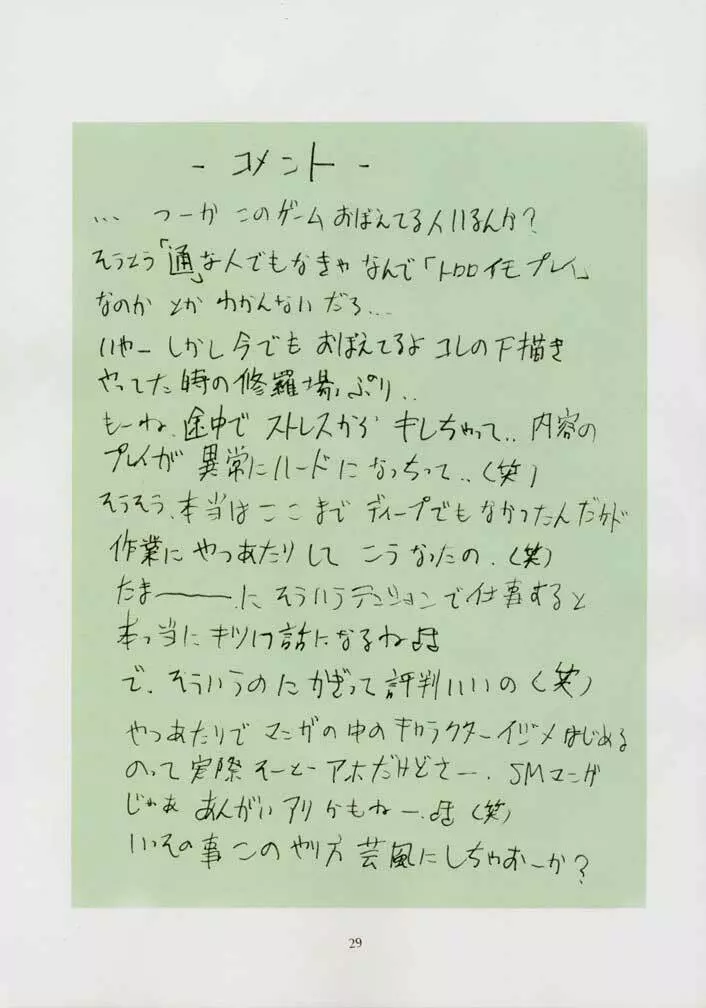 - コメント -
… つーか このゲーム おぼえてる人いるんか?
そうとう「通」な人でもなきゃ なんで「トロロイモプレイ」
なのか とか わかんないだろ…
いやー しかし今でも おぼえてるよ コレの下描き
やってた時の修羅場っぷり..
もーね、途中で ストレスから キレちゃって.. 内容の
プレイが 異常にハードになっちって..(笑)
そうそう、本当は ここまで ディープでもなかったんだけど
作業に やつあたりして こうなったの.(笑)
たまーーに そういうテンションで仕事すると
本っ当に キツイ話になるね♪
で、そういうのに かぎって 評判いいの(笑)
やつあたりで マンガの中のキャラクターイジメはじめる
のって 実際 そーとー アホだけどさー. SMマンガ
じゃあ あんがい アリ かもねー.♪(笑)
いっその事 このやり方 芸風にしちゃおーか?
29